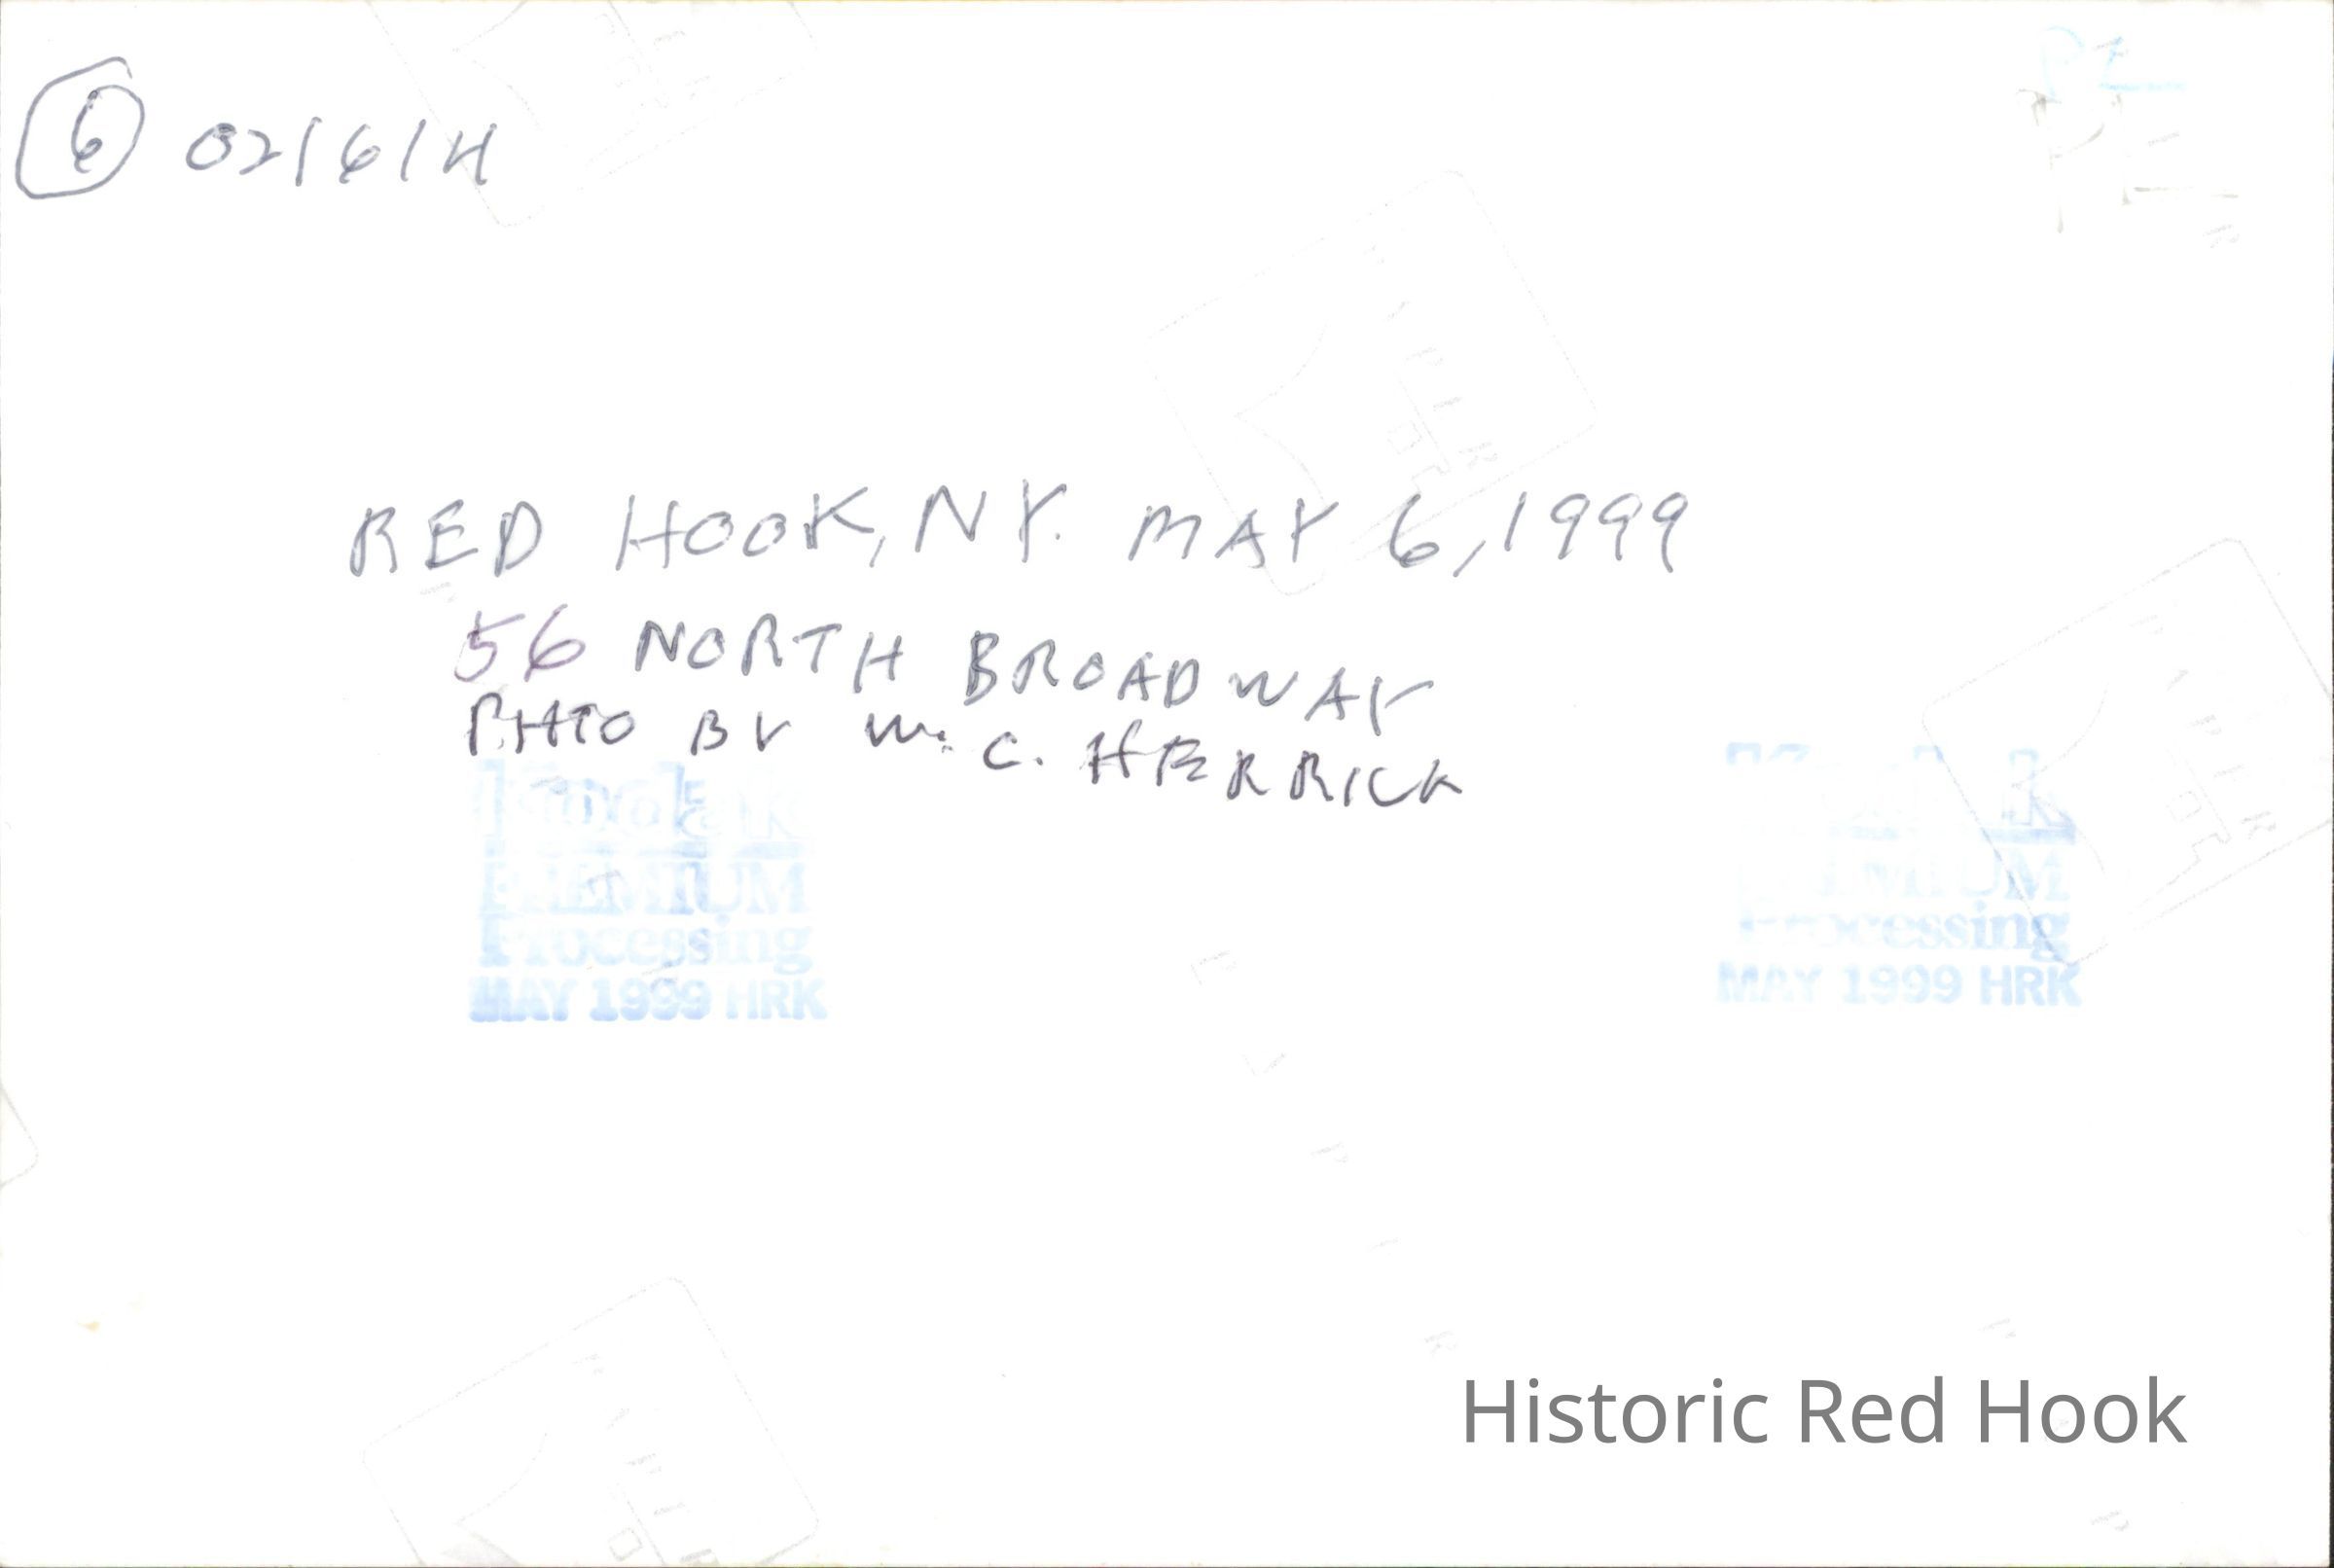 6 021614
RED HOOK, NY. MAY 6, 1999
56 NORTH BROADWAY
PHTO BY W. C. HERRICK
Kodak
PREMIUM
Processing
MAY 1999 HRK
PREMIUM
Processing
MAY 1999 HRK
Historic Red Hook